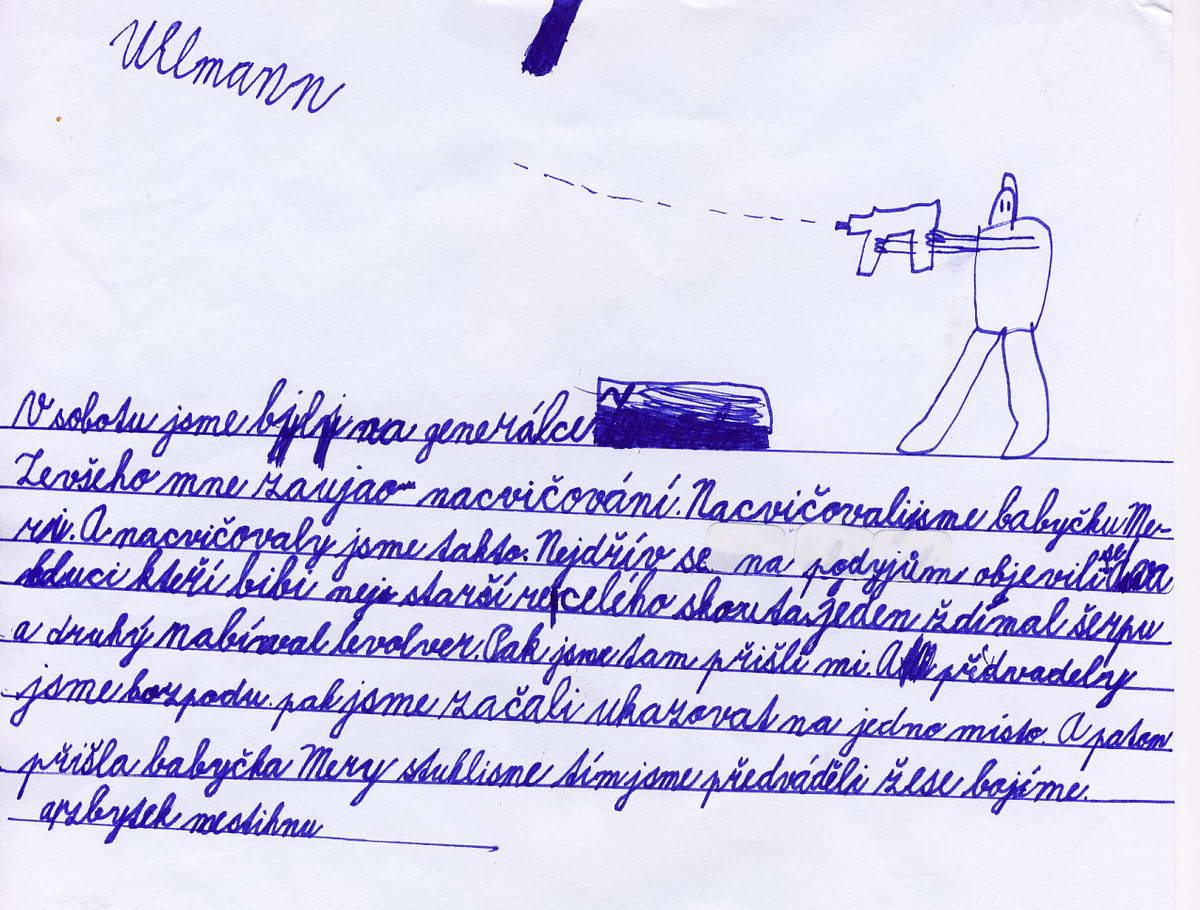 Ullmann
V sobotu jsme byly na generálce
Zevšeho mne zaujao nacvičování. Nacvičovalijsme babyčku Me-
ri. A nacvičovaly jsme takto. Nejdřív se na podyjům objevili
kteří bibi nej starší celého skouta. jeden ždímal šerpu
a druhý nabíval levolver. Pak jsme tam přišli mi. A předvadely
jsme hozpodu. pak jsme začali ukazovat na jedno místo. A patom
přišla babyčka Mery stuklisme tímjsme předváděli žese bojíme.
azbytek nestihnu